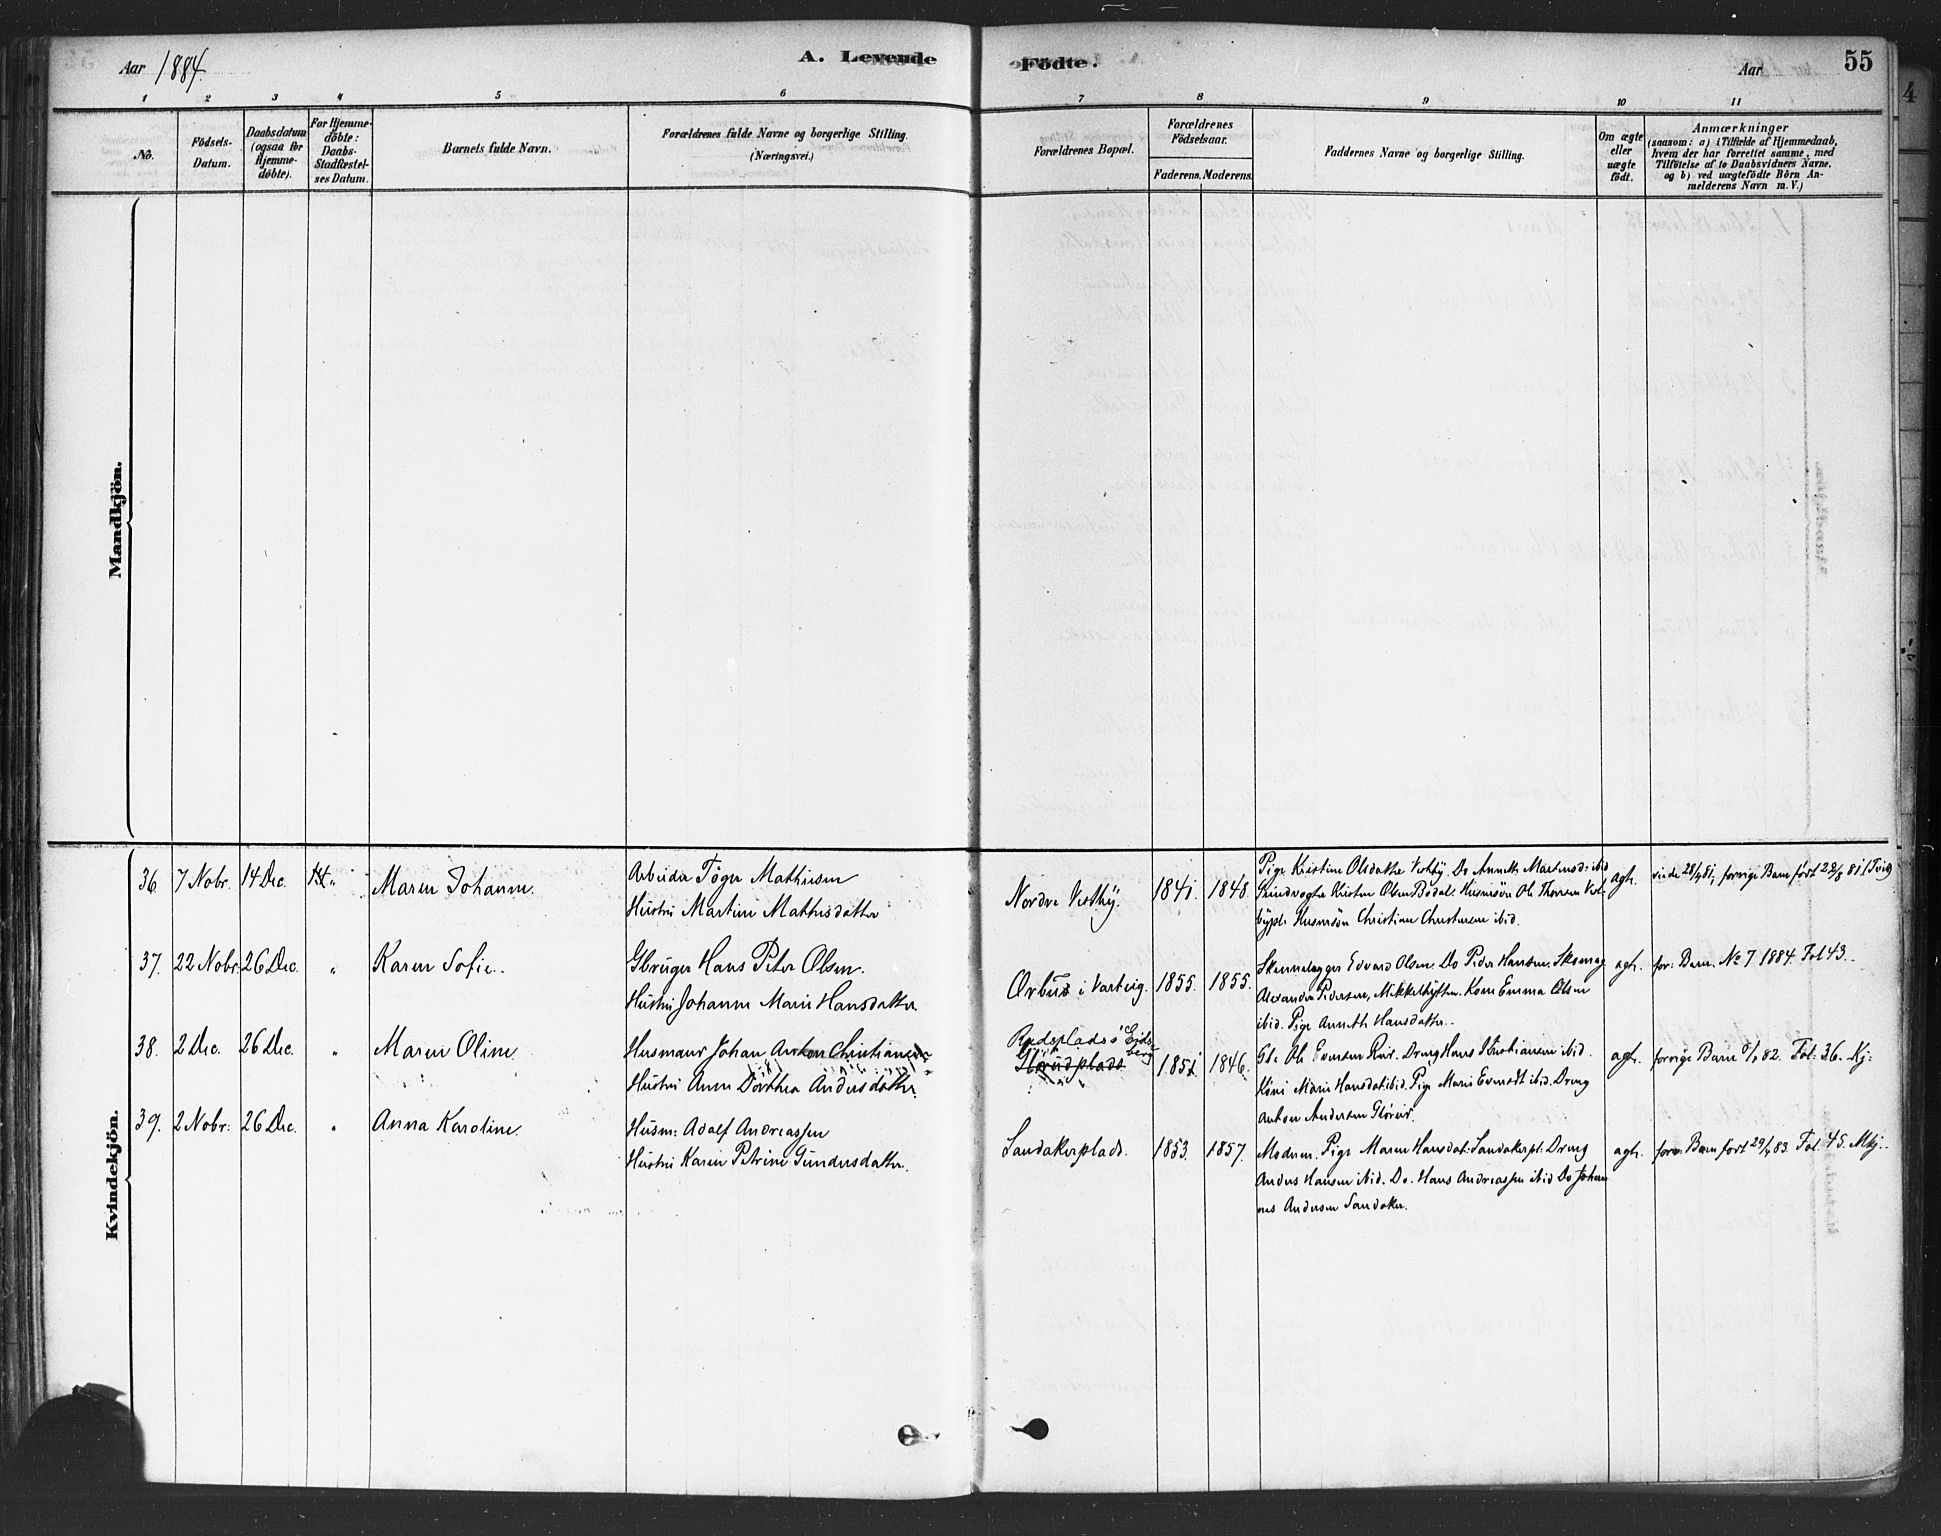 Aar 1884
A. Levende Födte.
Aar
55
1 2 3 4 5 6 7 8 9 10 11
No.
Födsels-Datum.
Daabsdatum (ogsaa for Hjemmedöbte).
For Hjemmedöbte: Daabs-Stadfæstelses Datum.
Barnets fulde Navn.
Forældrenes fulde Navne og borgerlige Stilling. (Næringsvei.)
Forældrenes Bopæl.
Forældrenes Födselsaar.
Faderens. Moderens.
Faddernes Navne og borgerlige Stilling.
Om ægte eller uægte födt.
Anmærkninger
(saasom: a) i Tilfælde af Hjemmedaab,
hvem der har forrettet samme, med
Tilföielse af to Daabsvidners Navne.
og b) ved uægtefödte Börn An-
melderens Navn m. V.)
Mandkjön.
Kvindekjön.
36 7 Nobr. 14 Dec. " Maren Johanne.
Arbeider Töger Mathisen
Hustru Martine Mathisdatter
Nordre Vestby. 1841. 1848.
Pige Kristine Olsdatter Vestby. Do Anneth Martinsd: ibid
Olsen Bodal. Ole Thoresen
Christian Christensen ibid.
ægte.
forrige Barn født
37. 22 Nobr. 26 Dec. " Karen Sofie.
Gbruger Hans Peter Olsen.
Hustru Johanne Marie Hansdatter.
Ørbus i Varteig. 1855. 1855.
Edvard Olsen. Do Peder Hansen. Skomag
Alexander Pedersen, Mikkelhytten. Kone Emma Olsen
ibid. Pige Anneth Hansdatter.
ægt.
for: Barn. No 7 1884. Fol 43.
38. 2 Dec. 26 Dec. " Maren Oline.
Husmand Johan Anton Christiansen
Hustru Anne Dorthea Andersdatter.
Rudsplads i Eidsberg
1851 1846.
Ole Evensen Rud. Dreng Hans Kristiansen ibid.
Kone Marie Hansdat: ibid. Pige Maris Evensdt ibid. Dreng
Anton Andersen
ægte.
forrige Barn 82. Fol: 36. Kj:
39. 2 Nobr: 26 Dec. " Anna Karoline.
Husm: Adolf Andreassen
Hustru Karen Petrine Gundersdatter.
Sandakerplads. 1853. 1857.
Moderen. Pige Maren Hansdat: Sandakerpl: Dreng
Anders Hansen ibid. Do. Hans Andreassen ibid Do Johan
nes Andersen Sandaker.
ægte.
forr: Barn født 29/4 83. Fol. 45. Mkj.